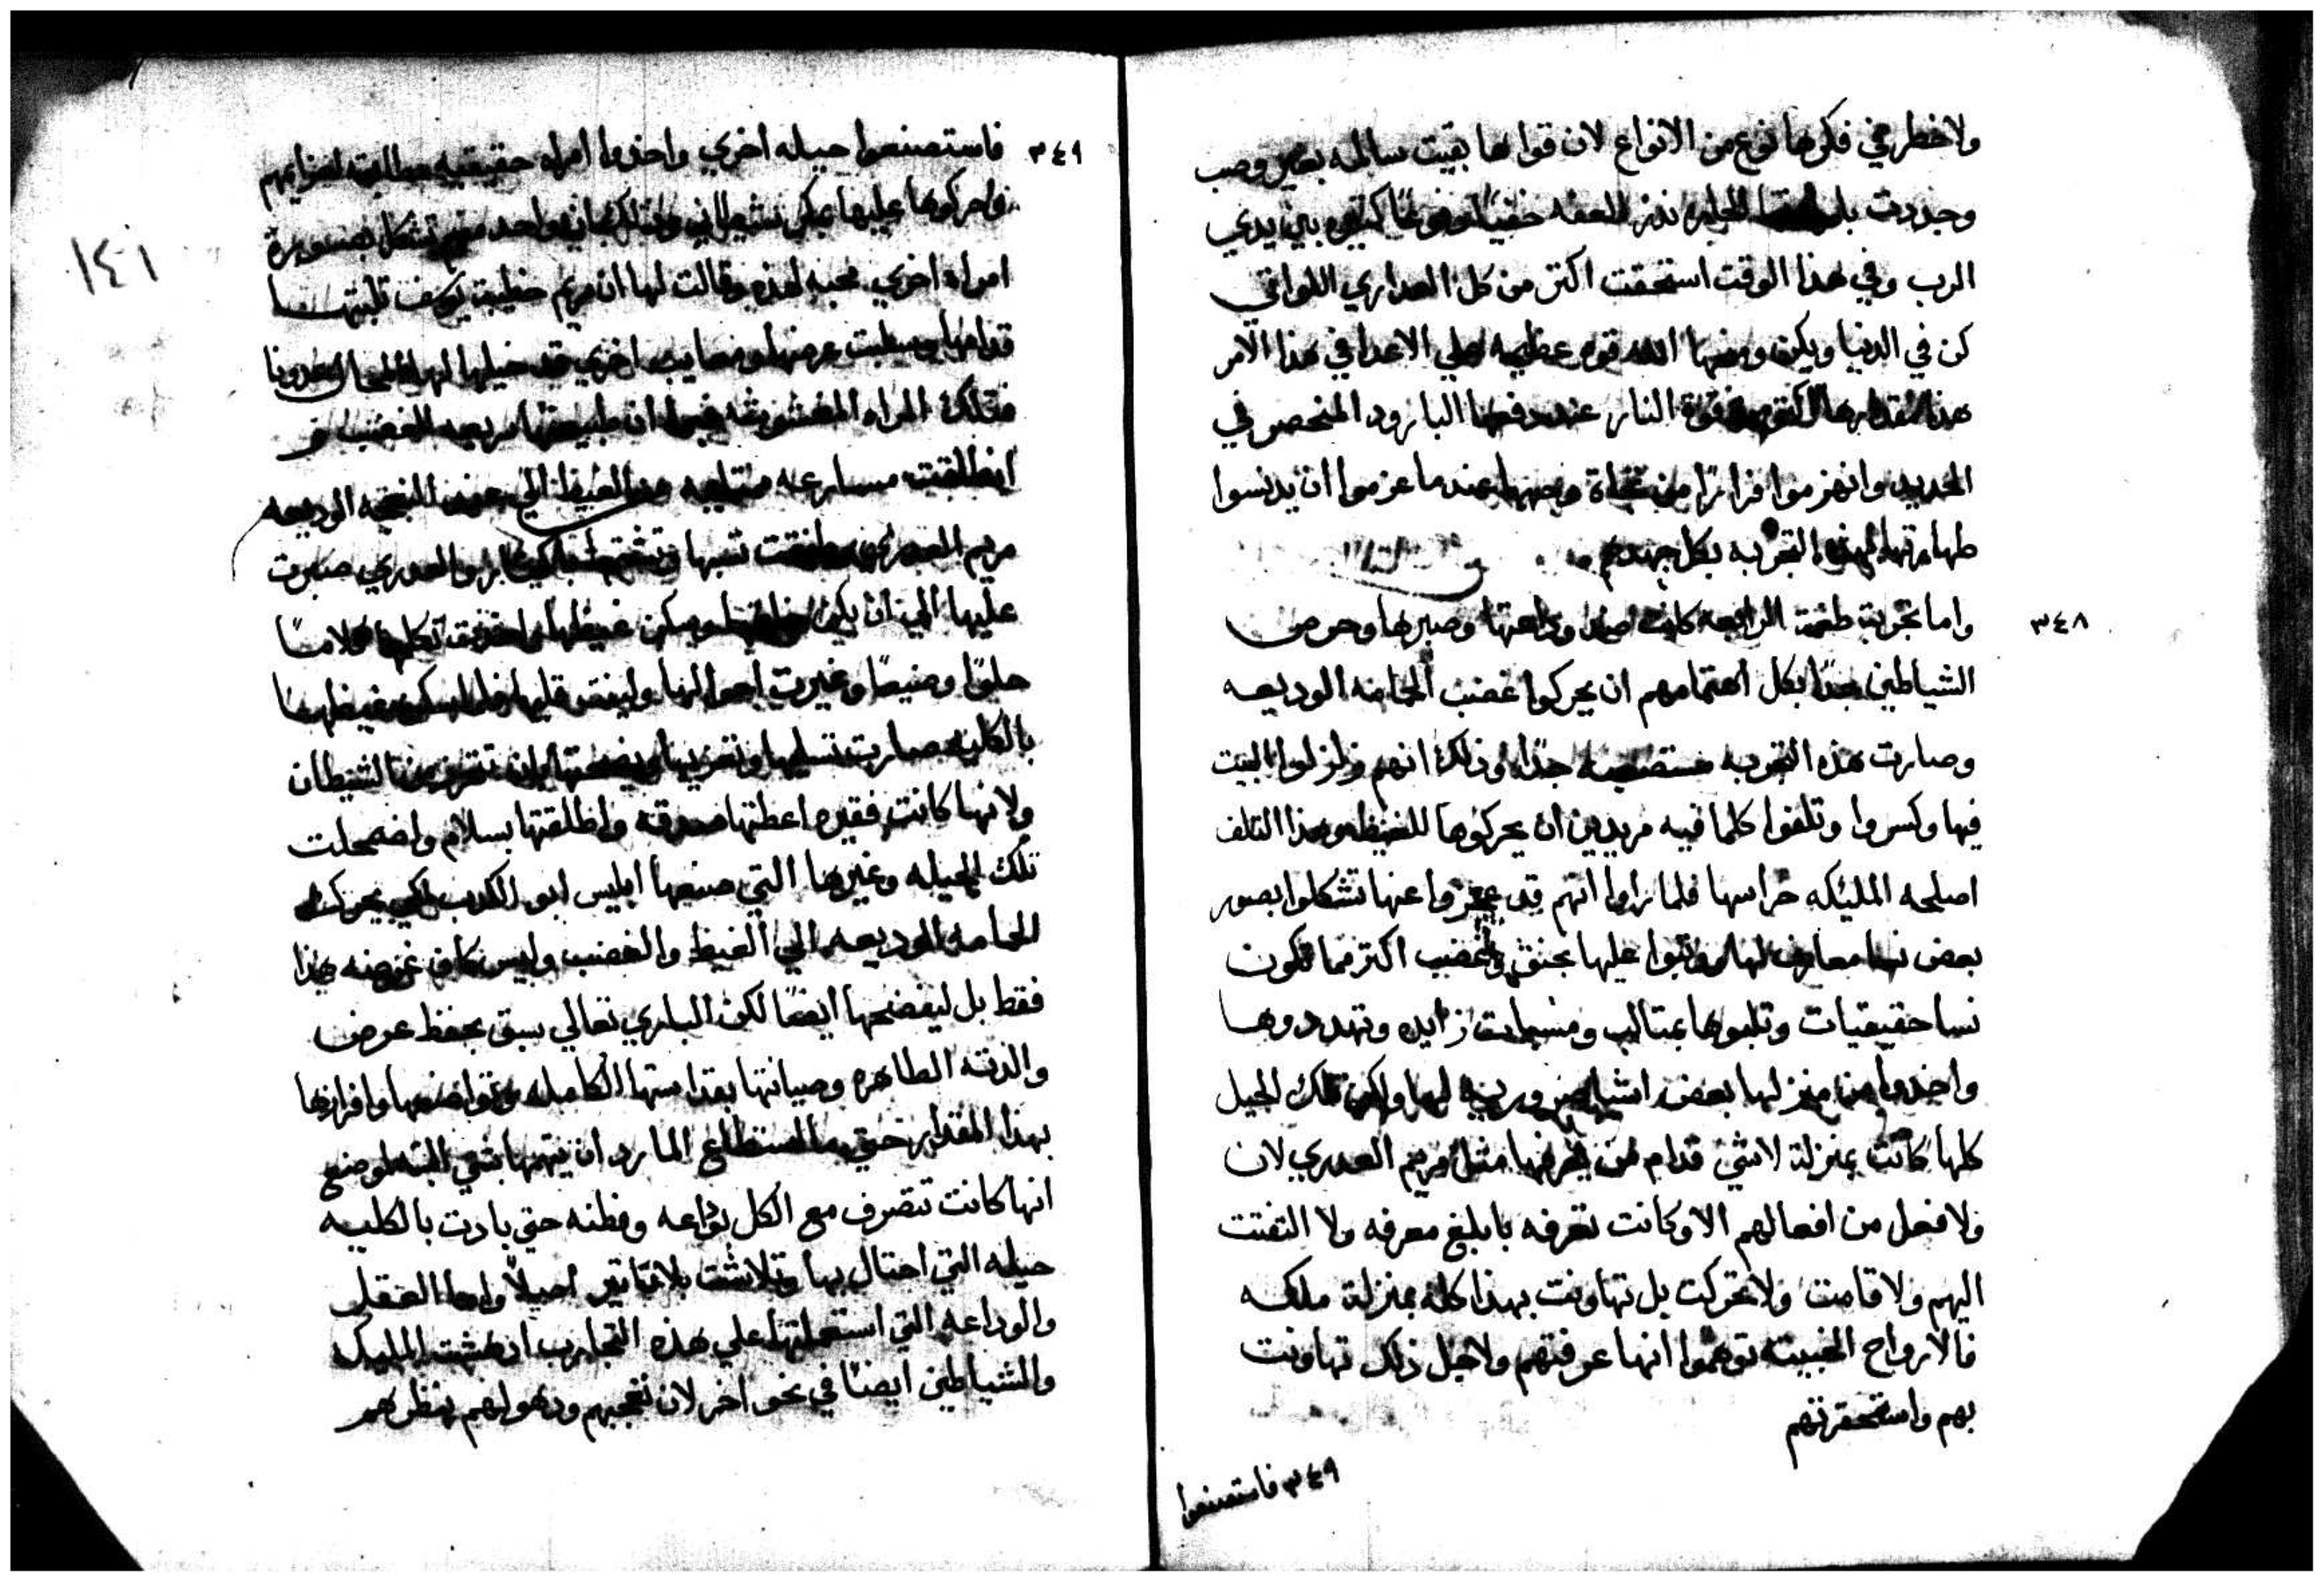 ولا خطر في فكرها نوع من الانواع لان قواها بقيت سالمه بغير وصب
وجددت نذر العفه بين يدي
الرب وفي هذا الوقت استحقت اكتر من كل العداري اللواتي
كن في الدنيا ويكن ومنحها الله قوه عظيمه علي الاعدا في هذا الامر
قوة النار عند دفعها البارود المنحصر في
الحديد وانهزموا فرارًا من تجاة وجهها عندما عزموا ان يدنسوا
طهارتها لهذه التجربه بكل جهدهم
٣٤٨ واما تجربة طغمة الرابعه كانت ضد وداعتها وصبرها وحرص
الشياطين جدًا بكل اهتمامهم ان يحركوا غضب الحمامه الوديعه
وصارت هذه التجربه مستصعبه جدًا وذلك انهم زلزلوا البيت
فيها وكسروا وتلفوا كلما فيه مريدين ان يحركوها للغيظ وهذا التلف
اصلحه المليكه حراسها فلما راوا انهم قد عجزوا عنها تشكلوا بصور
بعض نسا معارف لها وواتبوا عليها بحنق وغضب اكتر مما تكون
نسا حقيقيات وتلبوها بمتالب ومشيمات زايده وتهددوها
واخدوا من منزلها بعض اشيا ضروريه لها ولكن تلك الحيل
كلها كانت بمنزلة لاشي قدام من يعرفها مثل مريم العدري لان
ولا فعل من افعالهم الا وكانت تعرفه بابلغ معرفه ولا التفتت
اليهم ولا قامت ولا تحركت بل تهاونت بهذا كله بمنزلة ملكه
فالارواح الخبيته توهموا انها عرفتهم ولاجل ذلك تهاونت
بهم واستحقرتهم
٣٤٩ فاستصنعوا
٣٤٩ فاستصنعوا حيله اخري واخدوا امراه حقيقيه
وحركوها عليها واحد منهم تشكل بصورة
امراه اخري محبه لهذه وقالت لها ان مريم خطيبة يوسف تلبتها
قدامها وسلبت عرضها ومعايب اخري قد خيلها لها
فتلك المراه المغشوشه فبما ان طبيعتها سريعه الغضب
انطلقت مسارعه من الغيظ الي نحو النعجه الوديعه
مريم العدري تسبها وتشتمها والعدري صبرت
عليها الي ان يكن غيظها تكلمها كلامًا
حلوًا وغيرت احوالها ولينت قلبها فلما سكن غيظها
بالكليه صارت تسليها وتعزيها ونصحتها بان تتحرز من الشيطان
ولانها كانت فقيره اعطتها صدقه واطلقتها بسلام واضمحلت
تلك الحيله وغيرها التي صنعها ابليس ابو الكدب لكي يحرك
الحمامه الوديعه الي الغيظ والغضب وليس كان غرضه هذا
فقط بل ليفضحها ايضًا لكن الباري تعالي سبق بحفظ عرض
والدته الطاهره وصيانتها بقداستها الكامله وتواضعها وافرازها
بهذا المقدار حتي ما استطاع المارد ان يتهمها بشي البته لوضع
انها كانت تتصرف مع الكل بوداعه وفطنه حتي بادت بالكليه
حيله التي احتال بها وتلاشت بلا تاتير اصلًا واما العقل
والوداعه التي استعملتها علي هذه التجارب ادهشت المليكه
والشياطين ايضًا في نحو اخر لان تعجبهم ودهولهم بنظرهم
١٤١